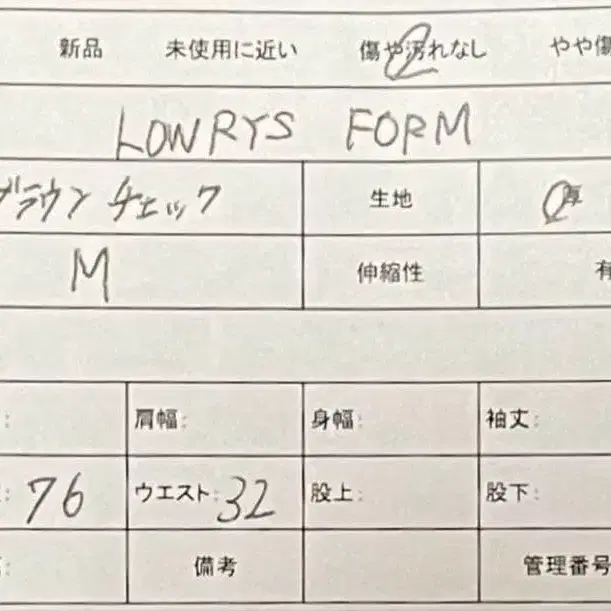 新品 未使用に近い 傷や汚れなし やや傷
LOWRYS FORM
ブラウンチェック 生地 厚
M 伸縮性 有
肩幅: 身幅: 袖丈:
: 76 ウエスト: 32 股上: 股下:
備考 管理番号